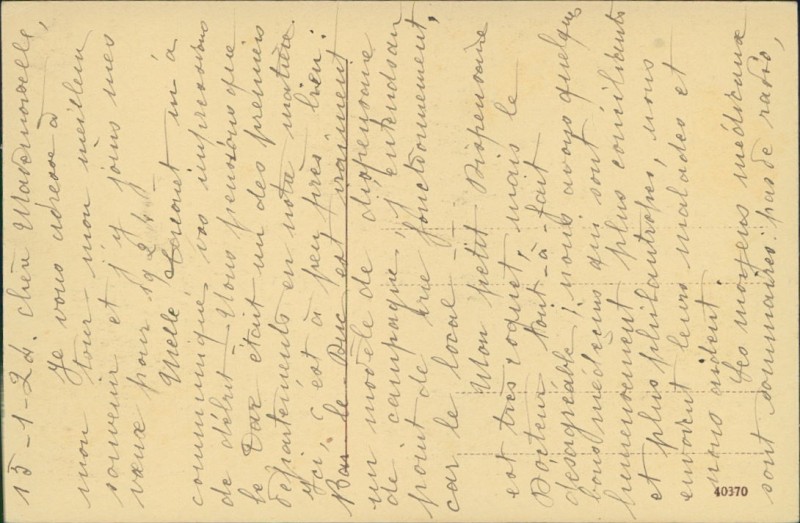 15-1-24. Chère Mademoiselle,
Je vous adresse à
mon tour mon meilleur
souvenir et j'y joins mes
vœux pour 1924
Melle m'a
communiqué vos impressions
de début - Nous pensions que
le était un des premiers
départements en notre matière
Ici, c'est à peu près bien.
Bar le Duc est vraiment
un modèle de dispensaire
de campagne, j'entends au
point de vue fonctionnement,
car le local -
Mon petit Dispensaire
est très coquet, mais le
Docteur tout-à-fait
désagréable ; nous avons quelques
bons médecins qui sont
heureusement plus conciliants
et plus philantropes, nous
envoient leurs malades et
nous aident
Les moyens médicaux
sont sommaires, pas de radio,
40370